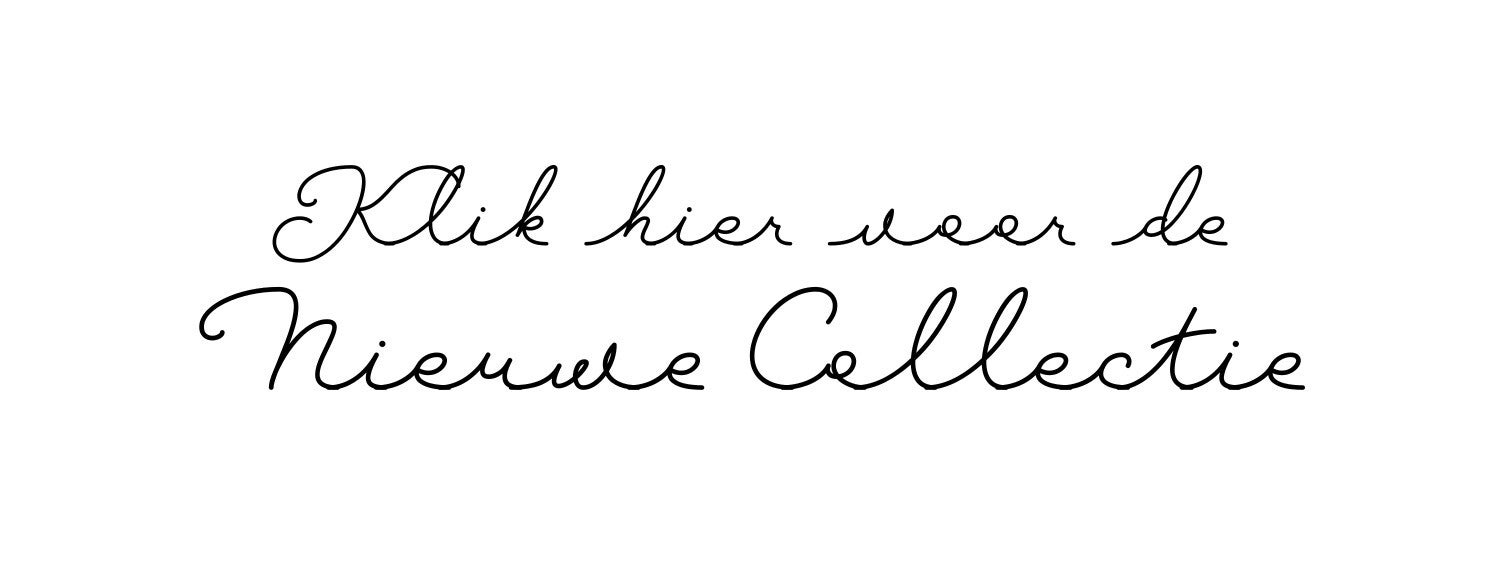 Klik hier voor de
Nieuwe Collectie